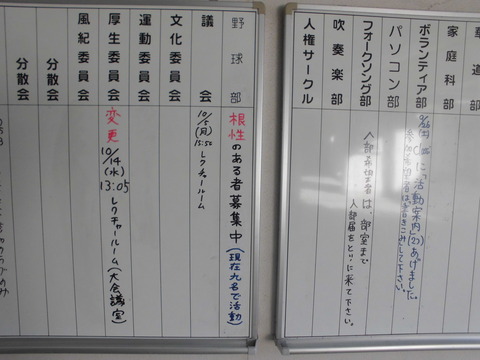 華道部
家庭科部
ボランティア部
9/26(土)
に「活動案内」(27)あげました。
パソコン部
フォークソング部
入部希望者は、部室まで
入部届をとりに来て下さい。
吹奏楽部
人権サークル
野球部
根性のある者募集中(現在九名で活動)
議会
10/5(月)
15:50 レクチャールーム
文化委員会
運動委員会
厚生委員会
変更 10/14(水) 13:05 レクチャールーム(大会議室)
風紀委員会
分散会
分散会